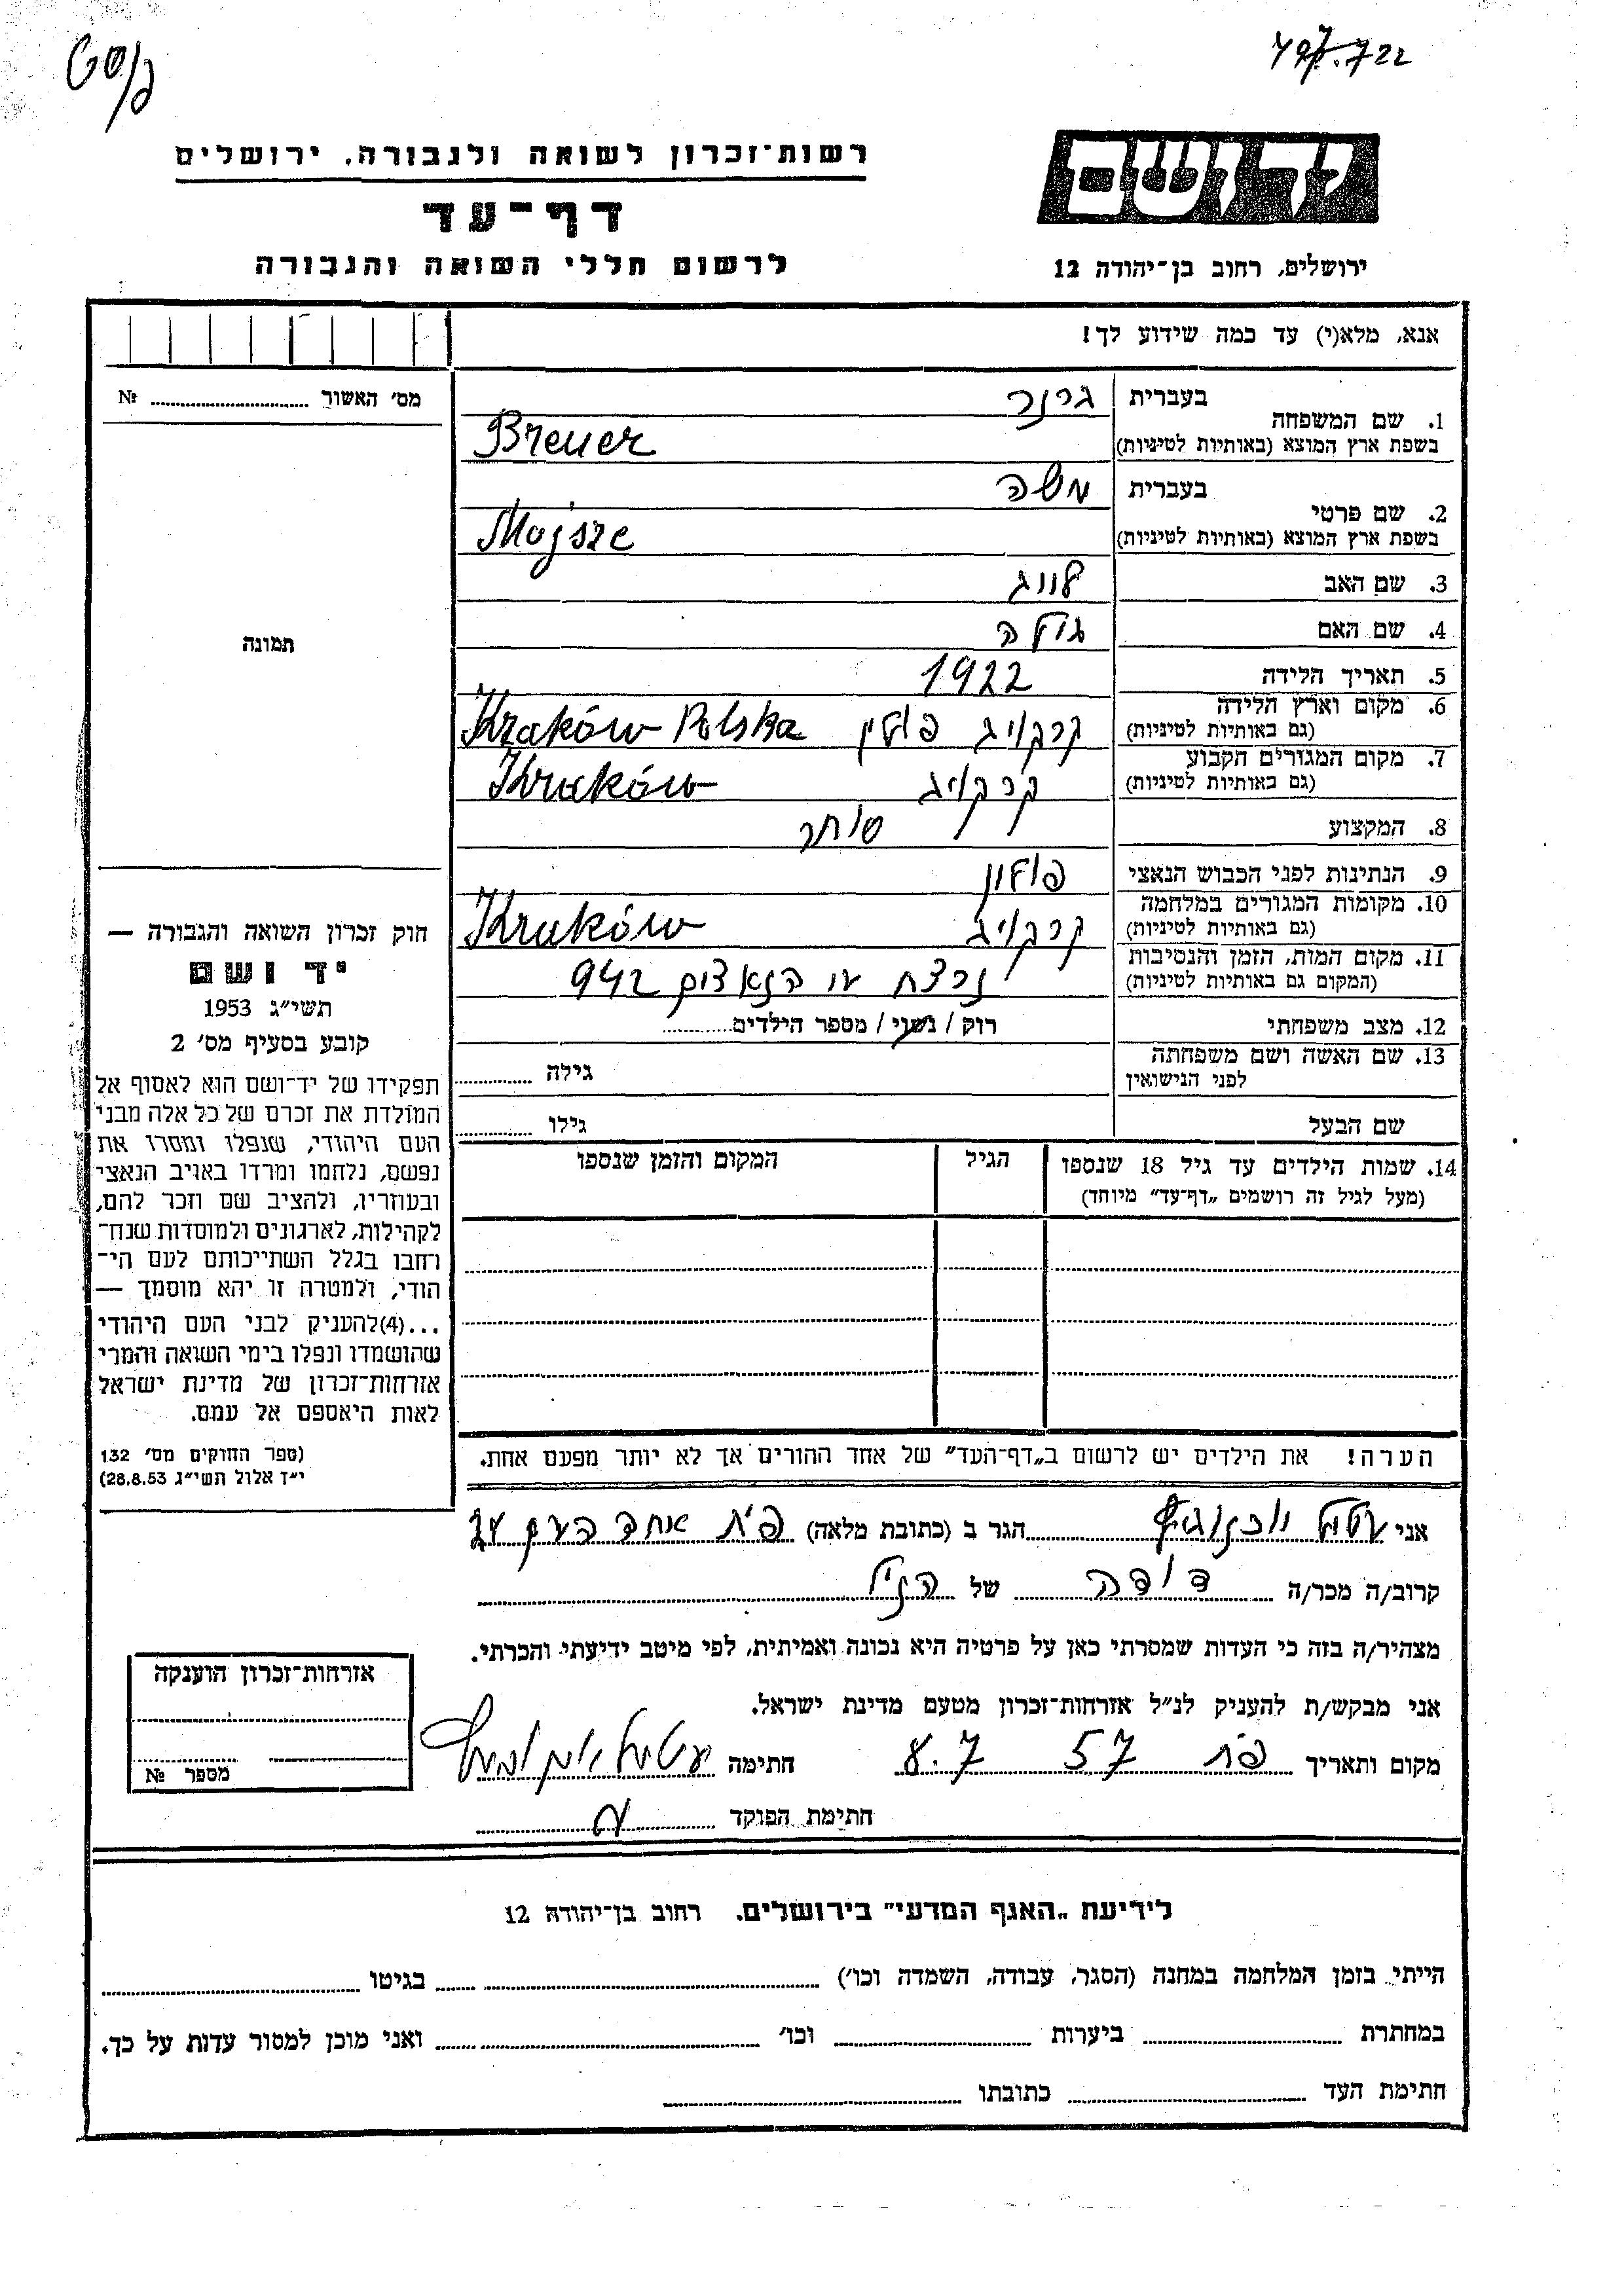 797.722
רשות־זכרון לשואה ולגבורה, ירושלים
יד ושם
דף־עד
לרשום חללי השואה והגבורה
ירושלים, רחוב בן־יהודה 12
אנא, מלא(י) עד כמה שידוע לך!
מס׳ האשור ........ №
1. שם המשפחה
בעברית
ברנר
בשפת ארץ המוצא (באותיות לטיניות)
Breuer
2. שם פרטי
בעברית
משה
בשפת ארץ המוצא (באותיות לטיניות)
Mojsze
3. שם האב
4. שם האם
5. תאריך הלידה 1922
6. מקום וארץ הלידה
(גם באותיות לטיניות)
קרקויב פולין Kraków Polska
7. מקום המגורים הקבוע
(גם באותיות לטיניות)
קרקויב Kraków
8. המקצוע סוחר
9. הנתינות לפני הכבוש הנאצי פולין
10. מקומות המגורים במלחמה
(גם באותיות לטיניות)
קרקויב Kraków
11. מקום המות, הזמן והנסיבות
(המקום גם באותיות לטיניות)
נרצח הנאצים 942
12. מצב משפחתי רוק / נשוי / מספר הילדים........
13. שם האשה ושם משפחתה
לפני הנישואין
גילה ........
שם הבעל גילו ........
14. שמות הילדים עד גיל 18 שנספו
(מעל לגיל זה רושמים „דף־עד״ מיוחד)
הגיל
המקום והזמן שנספו
תמונה
חוק זכרון השואה והגבורה —
יד ושם
תשי״ג 1953
קובע בסעיף מס׳ 2
תפקידו של יד־ושם הוא לאסוף אל
המולדת את זכרם של כל אלה מבני
העם היהודי, שנפלו ומסרו את
נפשם, נלחמו ומרדו באויב הנאצי
ובעוזריו, ולהציב שם וזכר להם,
לקהילות, לארגונים ולמוסדות שנח־
רחבו בגלל השתייכותם לעם הי־
הודי, ולמטרה זו יהא מוסמך —
...(4)להעניק לבני העם היהודי
שהושמדו ונפלו בימי השואה והמרי
אזרחות־זכרון של מדינת ישראל
לאות היאספם אל עמם.
(ספר החוקים מס׳ 132
י״ד אלול תשי״ג 28.8.53)
הערה! את הילדים יש לרשום ב„דף־העד״ של אחד ההורים אך לא יותר מפעם אחת.
אני ........ הגר ב (כתובת מלאה) פ״ת אחד העם
קרוב/ה מכר/ה דודה של הנ״ל
מצהיר/ה בזה כי העדות שמסרתי כאן על פרטיה היא נכונה ואמיתית, לפי מיטב ידיעתי והכרתי.
אני מבקש/ת להעניק לנ״ל אזרחות־זכרון מטעם מדינת ישראל.
מקום ותאריך פ״ת 57 8.7 חתימה
חתימת הפוקד
אזרחות־זכרון הוענקה
מספר №
לידיעת „האגף המדעי״ בירושלים. רחוב בן־יהודה 12
הייתי בזמן המלחמה במחנה (הסגר, עבודה, השמדה וכו׳) ........ בגיטו ........
במחתרת ........ ביערות ........ וכו׳ ........ ואני מוכן למסור עדות על כך.
חתימת העד ........ כתובתו ........